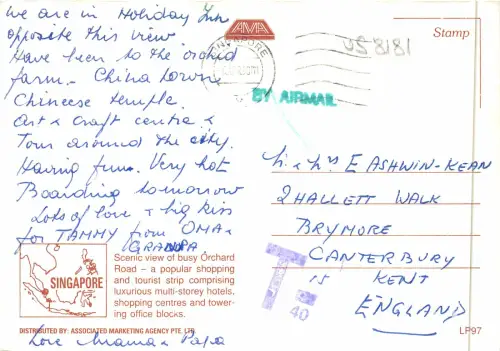 we are in Holiday Inn
opposite this view
Have been to the orchid
farm - China town
Chincese temple.
Art & craft centre &
Tour around the city.
Having fun. Very hot
Boarding tomorrow
Lots of love & big kiss
for TAMMY from OMA &
GRANDPA
Love Mama & Papa
AMA
SINGAPORE
BY AIRMAIL
US 8181
Stamp
E ASHWIN-KEAN
2 HALLETT WALK
BRYMORE
CANTERBURY
KENT
ENGLAND
T
40
SINGAPORE
Scenic view of busy Orchard
Road – a popular shopping
and tourist strip comprising
luxurious multi-storey hotels,
shopping centres and tower-
ing office blocks.
DISTRIBUTED BY: ASSOCIATED MARKETING AGENCY PTE. LTD.
LP97